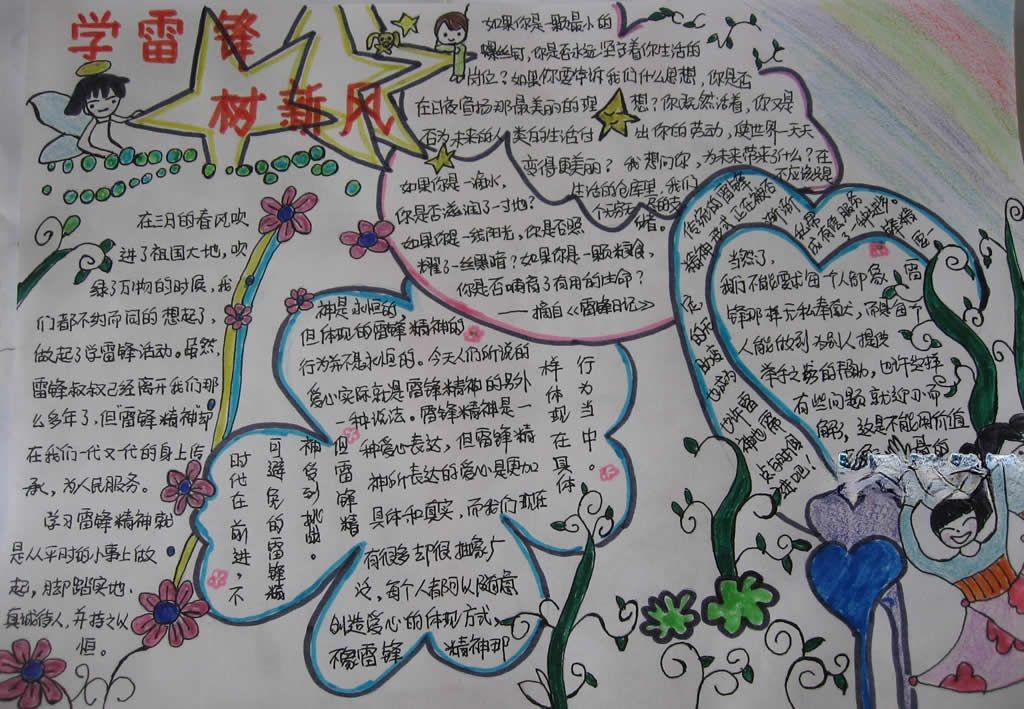 学雷锋
树新风
在三月的春风吹
进了祖国大地,吹
绿了万物的时展,我
们都不约而同的想起了,
做起了学雷锋活动。虽然,
雷锋叔叔已经离开我们那
么多年了,但"雷锋精神却
在我们一代又一代的身上传
承,为人民服务。
学习雷锋精神就
是从平时的小事上做
起,脚踏实地,
真诚待人,并持之以
恒。
如果你是一颗最小的
螺丝钉,你是否永远坚守着你生活的
岗位?如果你要告诉我们什么思想,你是否
在日夜宣扬那最美丽的理想?你既然活着,你又是
否为未来的人类的生活付出你的劳动,使世界一天天
变得更美丽?我想问你,为未来带来了什么?在
生活的仓库里,我们
不应该只是
个无穷无尽的支
如果你是一滴水,
你是否滋润了一寸地?
如果你是一线阳光,你是否照
耀了一丝黑暗?如果你是一颗粮食,
你是否哺育了有用的生命?
——摘自《雷锋日记》
神是永恒的,
但体现的雷锋精神的
行为并不是永恒的。今天人们所说的
爱心实际就是雷锋精神的另外
一种说法。雷锋精神是一
种爱心表达,但雷锋精
神所表达的爱心是更加
具体和真实,而我们现在
有很多却很抽象广
泛,每个人都可以随意
创造爱心的体现方式,
不像雷锋精神那
样体现在具体
行为当中。
时代在前进,不
可避免的雷锋精
神受到挑战。
但雷锋精
传统的雷锋
精神或正在被否
当然了,
我们不能要求每个人都象雷
锋那样无私奉献,而是每个
人能做到为别人提供
举手之劳的帮助,也许这样
有些问题就迎刃而
解,这是不能用价值